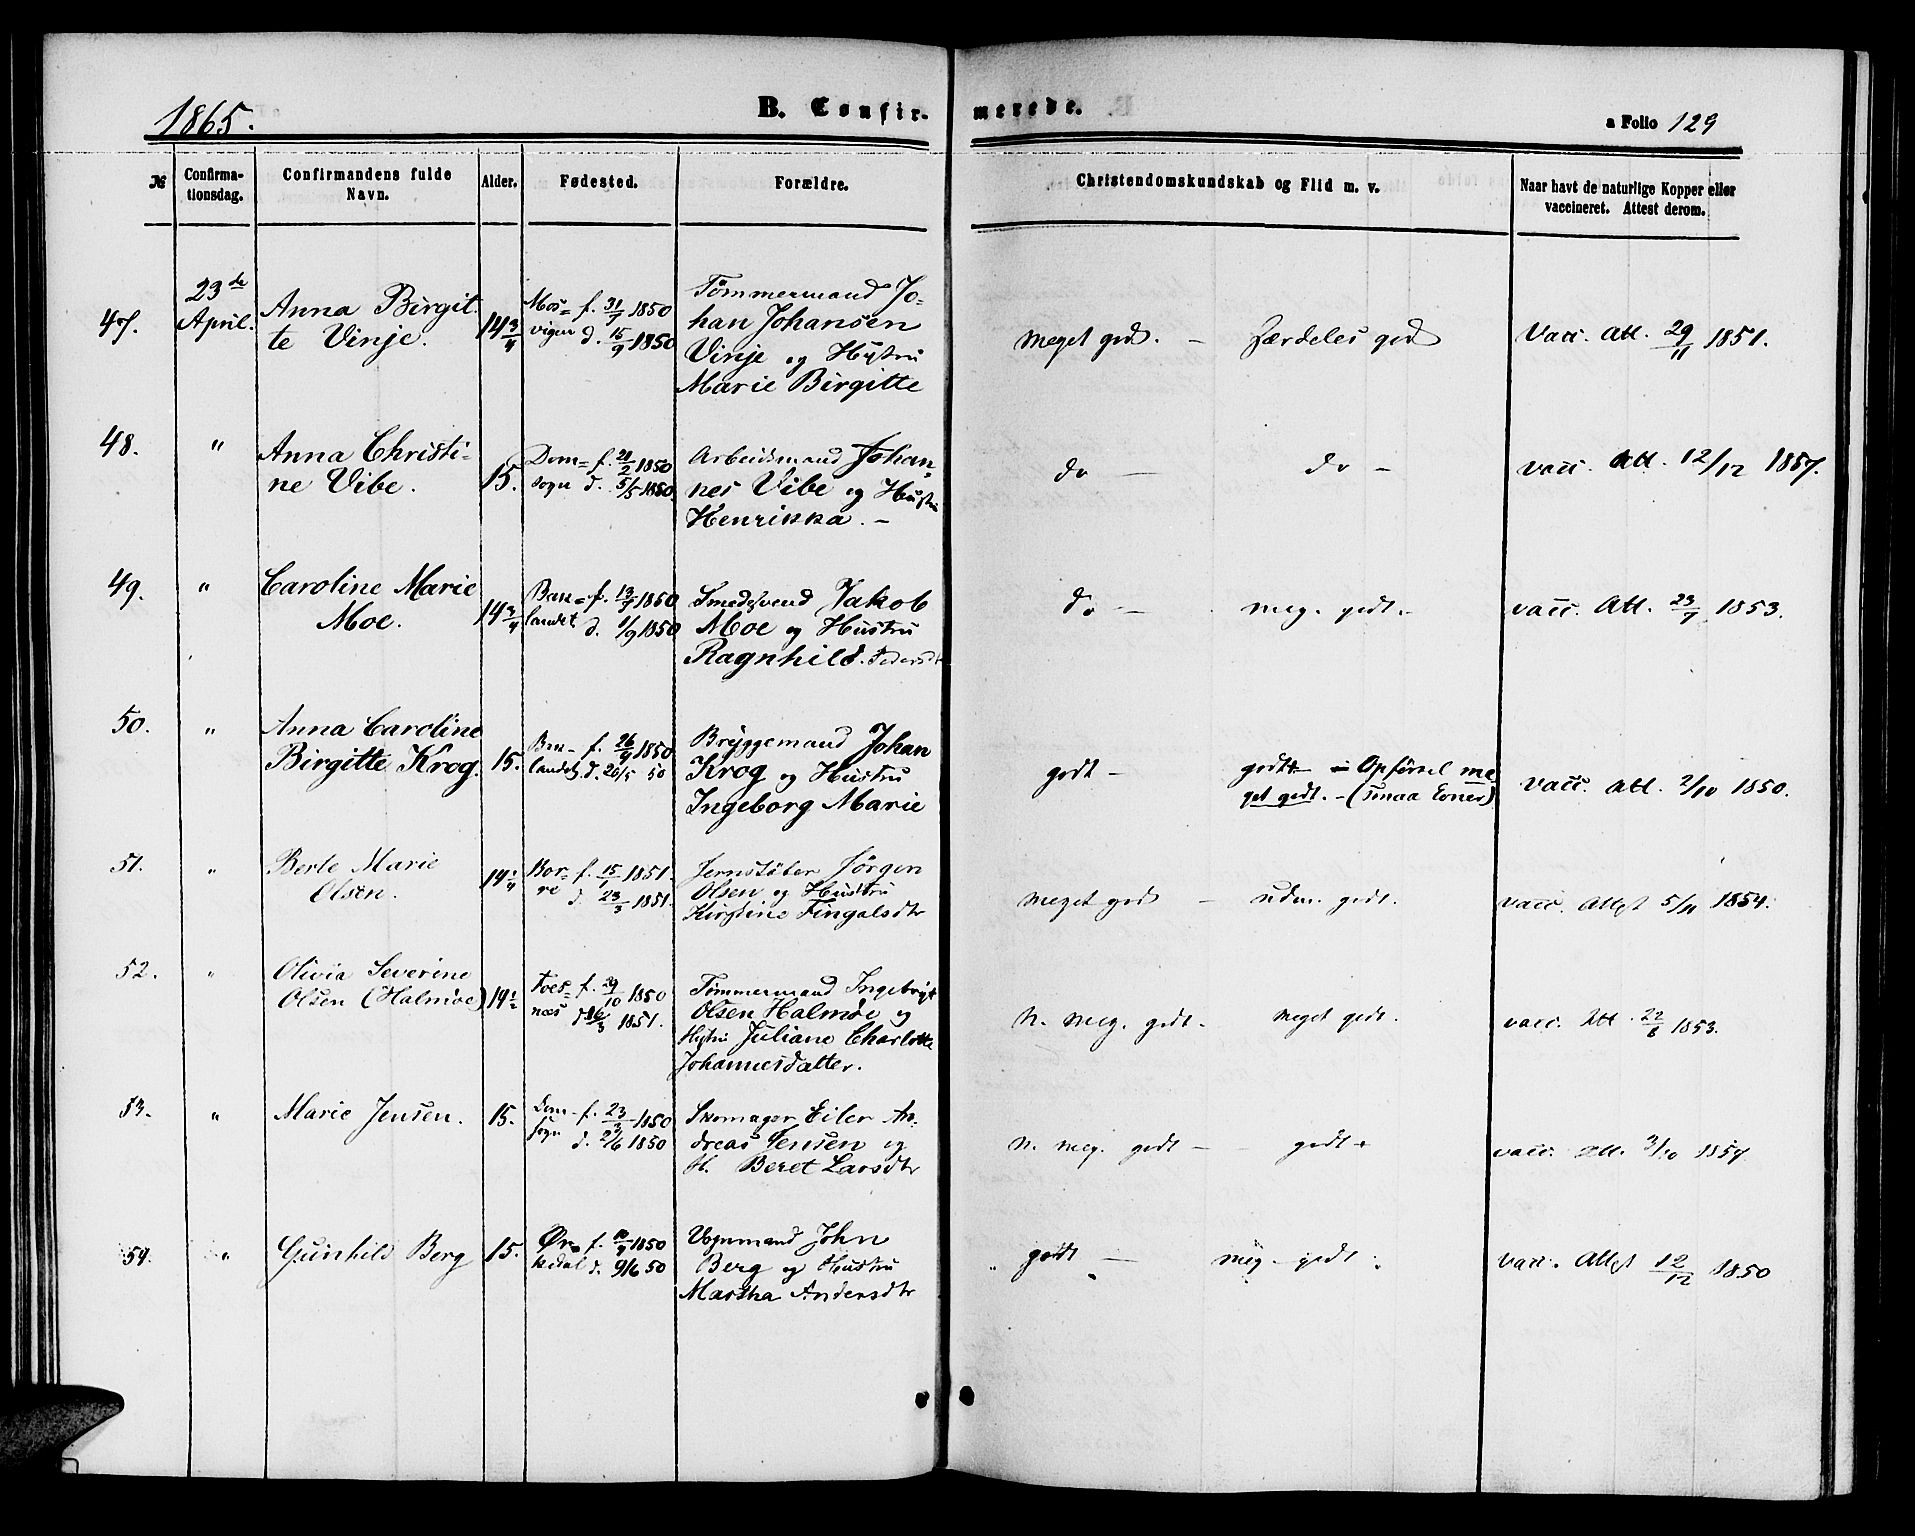 1865.
B. Confir-
merede.
a Folio 129
№
Confirma-
tionsdag.
Confirmandens fulde
Navn.
Alder.
Fødested.
Forældre.
Christendomskundskab og Flid m. v.
Naar havt de naturlige Kopper eller
vaccineret. Attest derom.
47.
23de
April.
Anna Birgit-
te Vinje.
14 3/4
Mos= f. 31/7 1850
vigen d. 15/9 1850
Tømmermand Jo-
han Johansen
Vinje og Hustru
Marie Birgitte
meget god. - særdeles god
Vacc. att. 29/11 1851.
48.
"
Anna Christi-
ne Vibe.
15.
Dom= f. 21/2 1850
sogn d. 5/5 1850.
Arbeidsmand Johan-
nes Vibe og Hustru
Henrikka. -
do - do -
vacc. att. 12/12 1857.
49.
"
Caroline Marie
Moe.
14 3/4
Bak= f. 13/7 1850
landet d. 1/9 1850
Smedesvend Jakob
Moe og Hustru
Ragnhild. Pedersdt
do - meg. godt. -
vacc. Att. 23/7 1853.
50.
"
Anna Caroline
Birgitte Krog.
15.
Bak- f. 26/4 1850
landet d. 26/5 50
Bryggemand Johan
Krog og Hustru
Ingeborg Marie
godt - godt - Opførsel me-
get godt. - (smaa Evner)
vacc. att. 2/10 1850.
51.
"
Berte Marie
Olsen.
14 1/4
Bor- f. 15/1 1851.
re d. 23/3 1851.
Jernstøber Jørgen
Olsen og Hustru
Kirstine Fingalsdtr
meget god - udm. godt.
vacc. Attest 5/11 1854.
52.
"
Olivia Severine
Olsen (Halmøe)
14 1/2
Foes= f. 29/10 1850
næs d. 16/3 1851.
Tømmermand Ingebrigt
Olsen Halmøe og
Hustru Juliane Charlotte
Johannesdatter.
N. meg. godt. meget godt.
vacc. Att. 22/6 1853.
53.
"
Marie Jensen.
15.
Dom- f. 23/3 1850
sogn d. 2/6 1850
Skomager Eiler An-
dreas Jensen og
H. Beret Larsdtr
N. meg. godt - godt +
vacc. att. 3/10 1857.
54.
"
Gunhild Berg
15.
Ør= f. 10/4 1850
kedal d. 9/6 50
Vognmand John
Berg og Hustru
Martha Andersdtr
godt - meg. godt.
vacc. Attest 12/12 1850